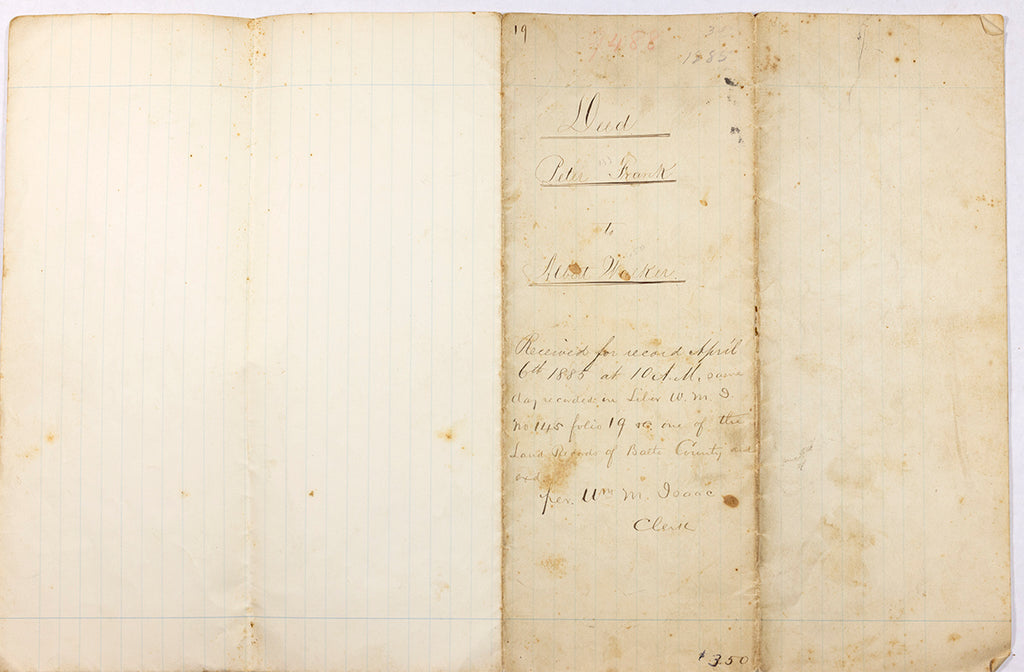 19
1488
1885
Deed
Peter Frank
to
Albert Walker.
Received for record April
6th 1885 at 10 A.M. same
day recorded in Liber W. M. I.
No 145 folio 19 &c one of the
Land Records of Balto County and
exd
per. Wm M. Isaac
Clerk
$3.50